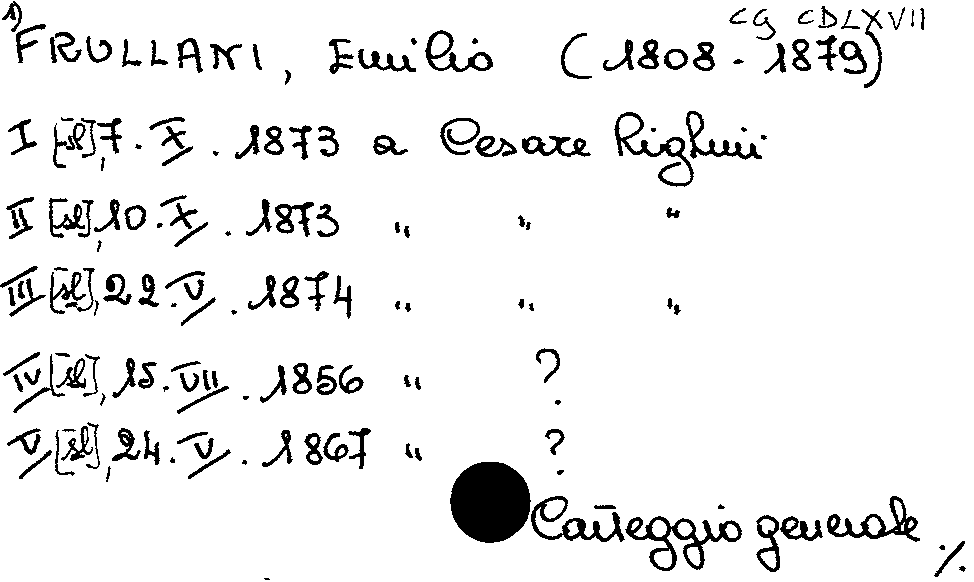 1) CG CDLXVII
FRULLANI, Emilio (1808-1879)
I [sl], 7.X.1873 a Cesare Righini
II [sl], 10.X.1873 " " "
III [sl], 22.V.1874 " " "
IV [sl], 15.VII.1856 " ?
V [sl], 24.V.1867 " ?
Carteggio generale ./.